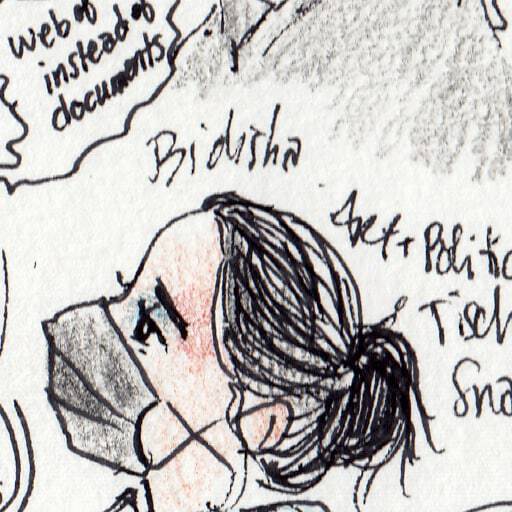 web of
instead of
documents
Bidisha
Art + Politic
Tisch
Sna